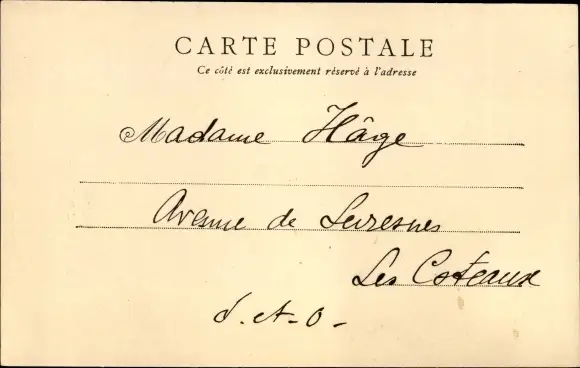 CARTE POSTALE
Ce côté est exclusivement réservé à l'adresse
Madame Hâge
Avenue de Suresnes
Les Coteaux
S.-et-O-